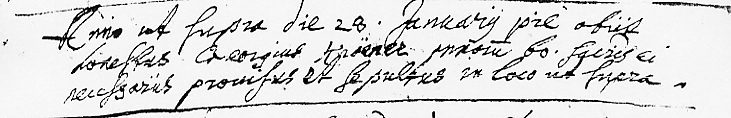 Anno ut supra die 28. Januarÿ pie obijt
honestus Georgius annorum 60. sacris ei
necessarijs provisus et sepultus in loco ut supra.